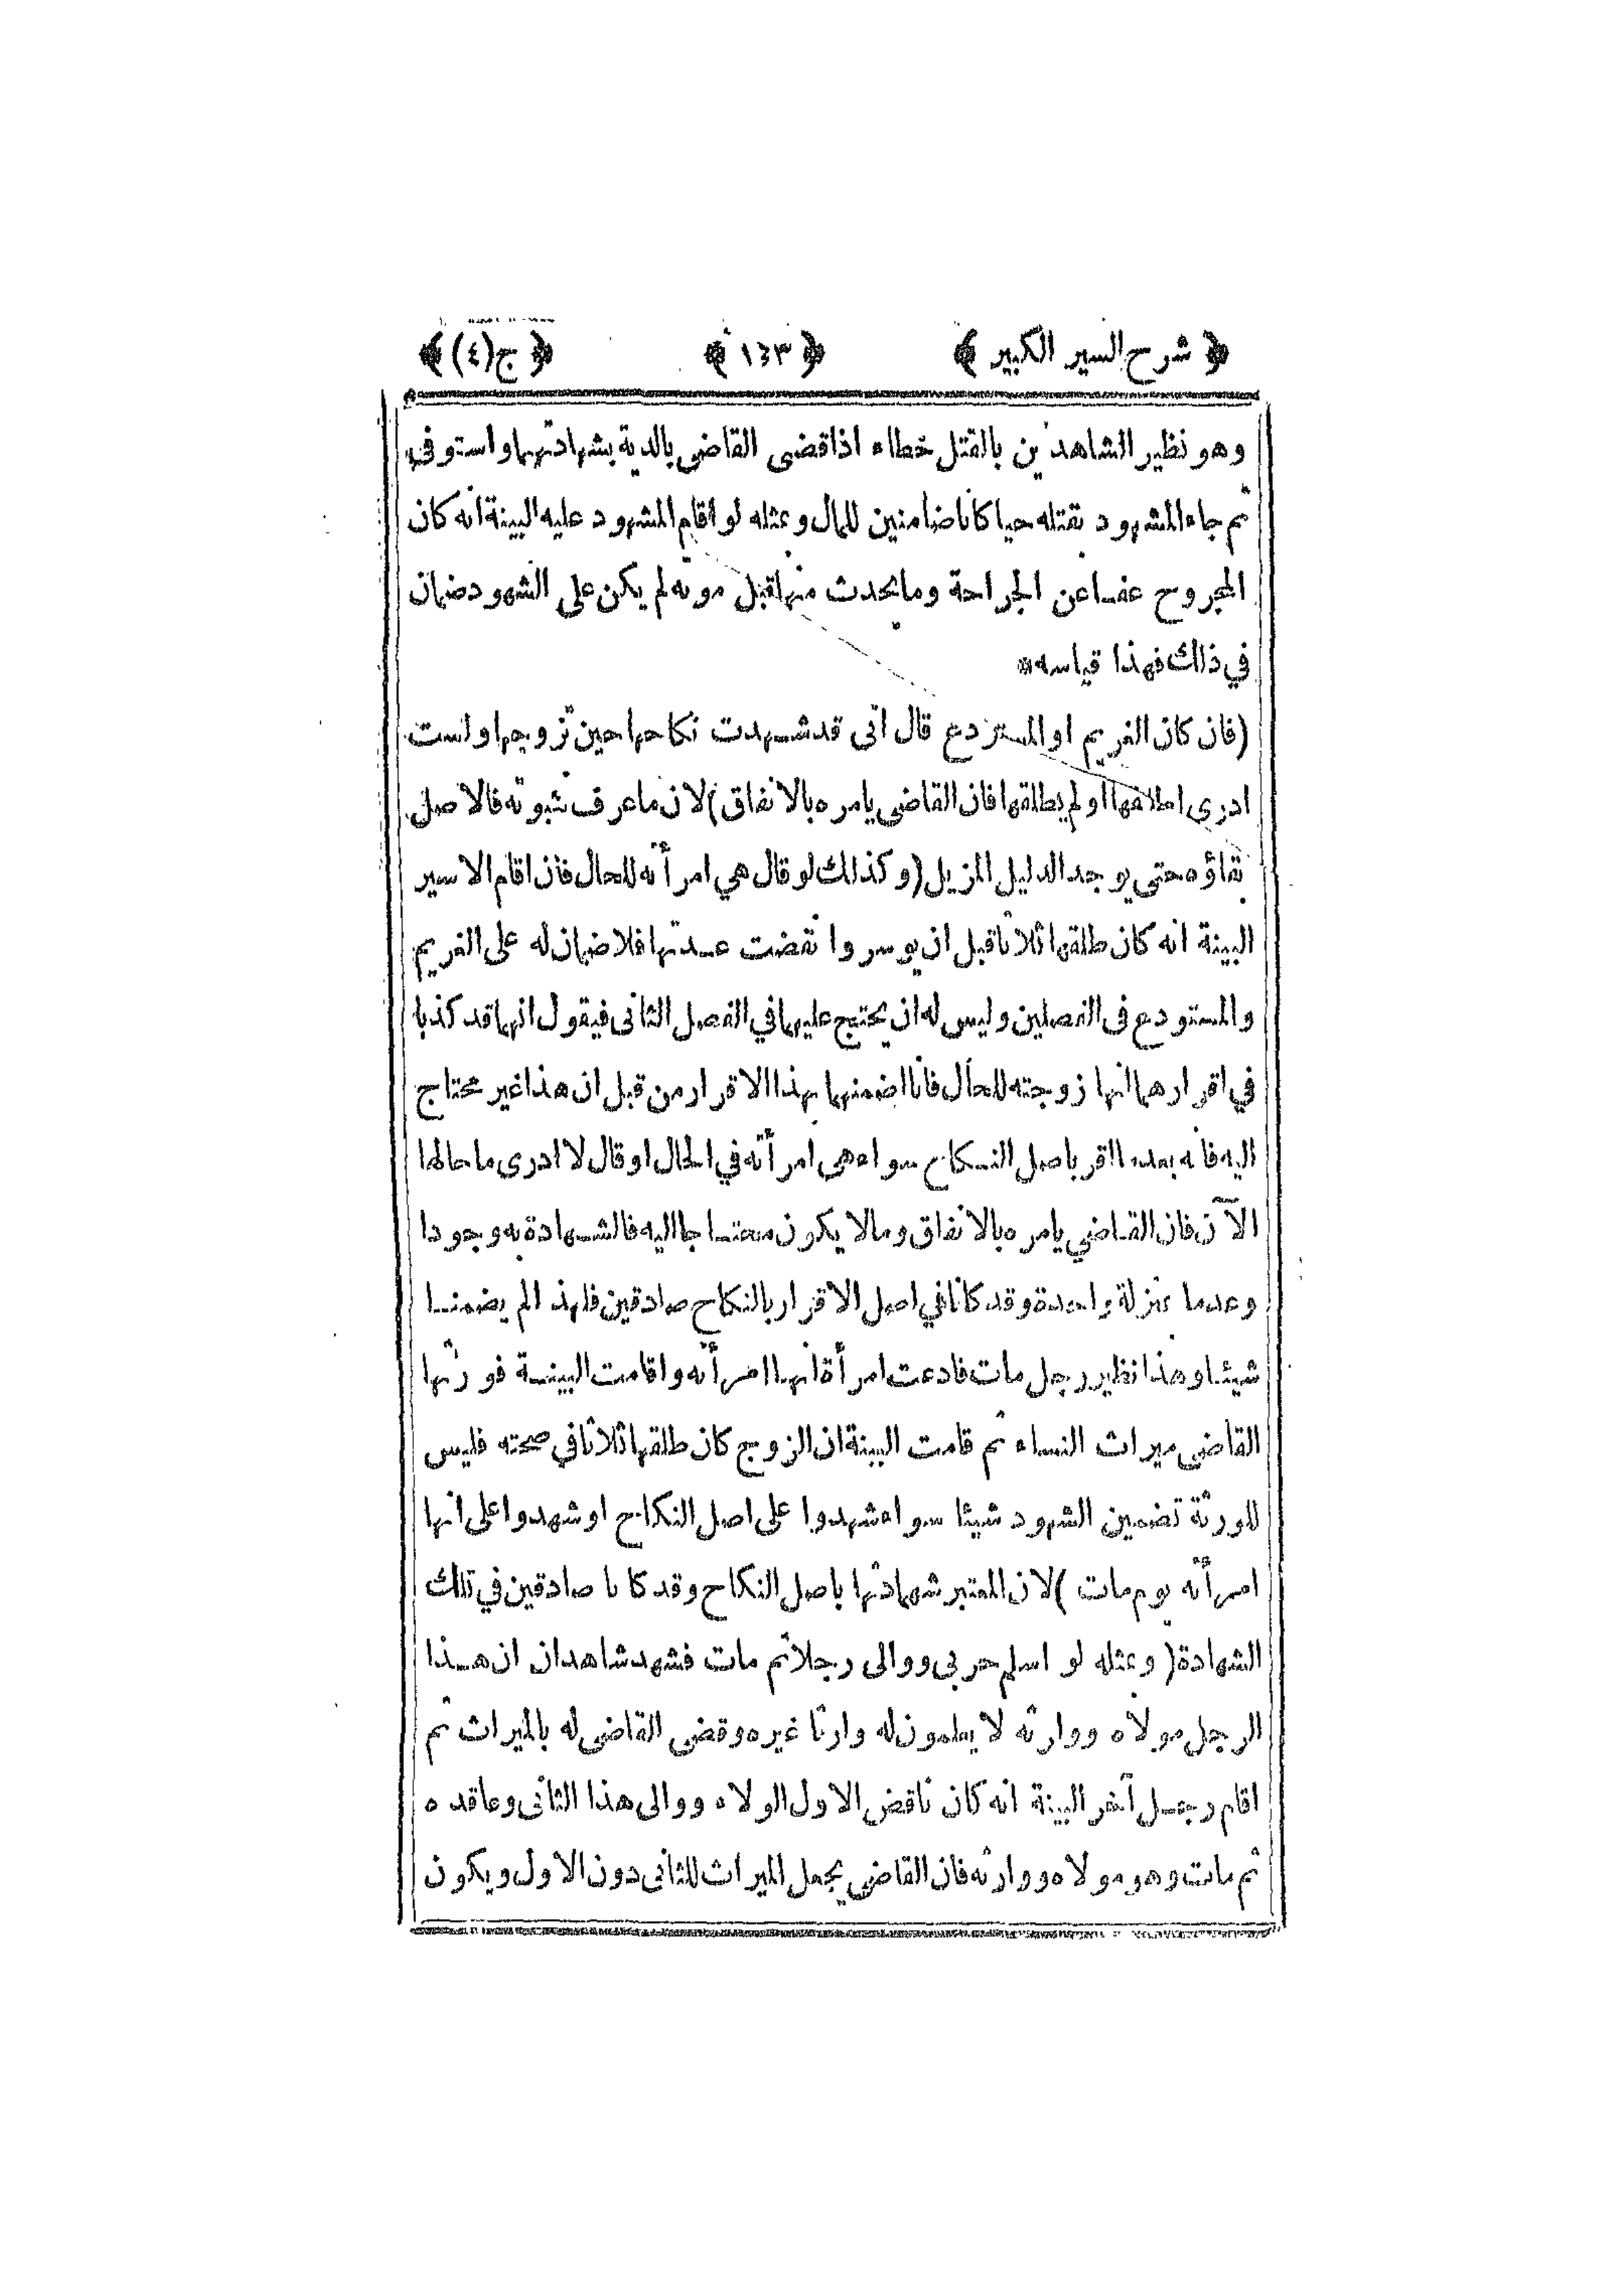 ﴿ شرح السير الكبير ﴾ ﴿ ١٤٣ ﴾ ﴿ ج(٤) ﴾
وهو نظير الشاهدين بالقتل خطاء اذا قضى القاضى بالدية بشهادتهما واستوفى
ثم جاء المشهود بقتله حيا كانا ضامنين للمال وبمثله لو اقام المشهود عليه البينة انه كان
المجروح عفا عن الجراحة وما يحدث منها قبل موته لم يكن على الشهود ضمان
في ذلك فهذا قياسه *
(فان كان الغريم او المستودع قال انى قد شهدت نكاحها حين تزوجها ولست
ادرى اطلقها او لم يطلقها فان القاضى يامره بالانفاق) لان ما عرف ثبوته فالاصل
بقاؤه حتى يوجد الدليل المزيل (وكذلك لو قال هي امرأته للحال فان اقام الاسير
البينة انه كان طلقها ثلاثا قبل ان يوسر وانقضت عدتها فلا ضمان له على الغريم
والمستودع فى الفصلين وليس له ان يحتج عليهما في الفصل الثانى فيقول انهما قد كذبا
في اقرارهما انها زوجته للحال فانا اضمنهما بهذا الاقرار من قبل ان هذا غير محتاج
اليه فانه بعد ما اقر باصل النكاح سواء هى امرأته في الحال او قال لا ادرى ما حالها
الآن فان القاضي يامره بالانفاق وما لا يكون محتاجا اليه فالشهادة به وجودا
وعدما بمنزلة واحدة وقد كانا في اصل الاقرار بالنكاح صادقين فلهذا لم يضمنا
شيئا وهذا نظير رجل مات فادعت امرأة انها امرأته واقامت البينة فورثها
القاضى ميراث النساء ثم قامت البينة ان الزوج كان طلقها ثلاثا في صحته فليس
للورثة تضمين الشهود شيئا سواء شهدوا على اصل النكاح او شهدوا على انها
امرأته يوم مات) لان المعتبر شهادتها باصل النكاح وقد كانا صادقين في تلك
الشهادة (وبمثله لو اسلم حربى ووالى رجلا ثم مات فشهد شاهدان ان هذا
الرجل مولاه ووارثه لا يعلمون له وارثا غيره وقضى القاضى له بالميراث ثم
اقام رجل آخر البينة انه كان ناقض الاول الولاء ووالى هذا الثانى وعاقده
ثم مات وهو مولاه ووارثه فان القاضي يجعل الميراث للثانى دون الاول ويكون